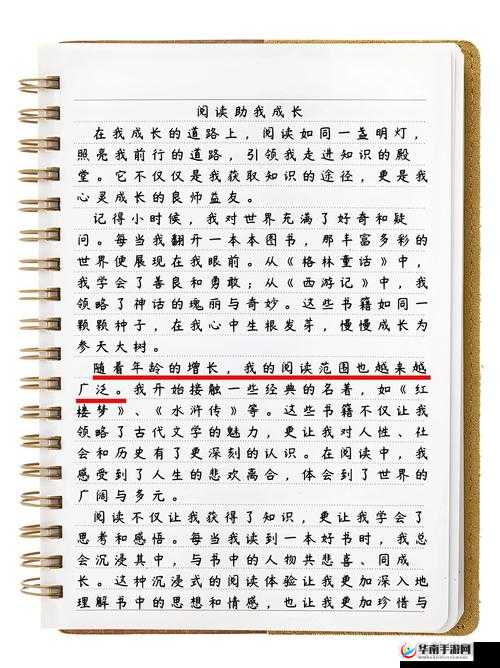 阅读助我成长
在我成长的道路上，阅读如同一盏明灯，
照亮我前行的道路，引领我走进知识的殿
堂。它不仅仅是我获取知识的途径，更是我
心灵成长的良师益友。
记得小时候，我对世界充满了好奇和疑
问。每当我翻开一本本图书，那丰富多彩的
世界便展现在我眼前。从《格林童话》中，
我学会了善良和勇敢；从《西游记》中，我
领略了神话的瑰丽与奇妙。这些书籍如同一
颗颗种子，在我心中生根发芽，慢慢成长为
参天大树。
随着年龄的增长，我的阅读范围也越来越
广泛。我开始接触一些经典的名著，如《红
楼梦》、《水浒传》等。这些书籍不仅让我
领略了古代文学的魅力，更让我对人性、社
会和历史有了更深刻的认识。在阅读中，我
感受到了人生的悲欢离合，体会到了世界的
广阔与多元。
阅读不仅让我获得了知识，更让我学会了
思考和感悟。每当我读到一本好书时，我总
会沉浸其中，与书中的人物共悲喜、同成
长。这种沉浸式的阅读体验让我更加深入地
理解书中的思想和情感，也让我更加珍惜与
华南手游网